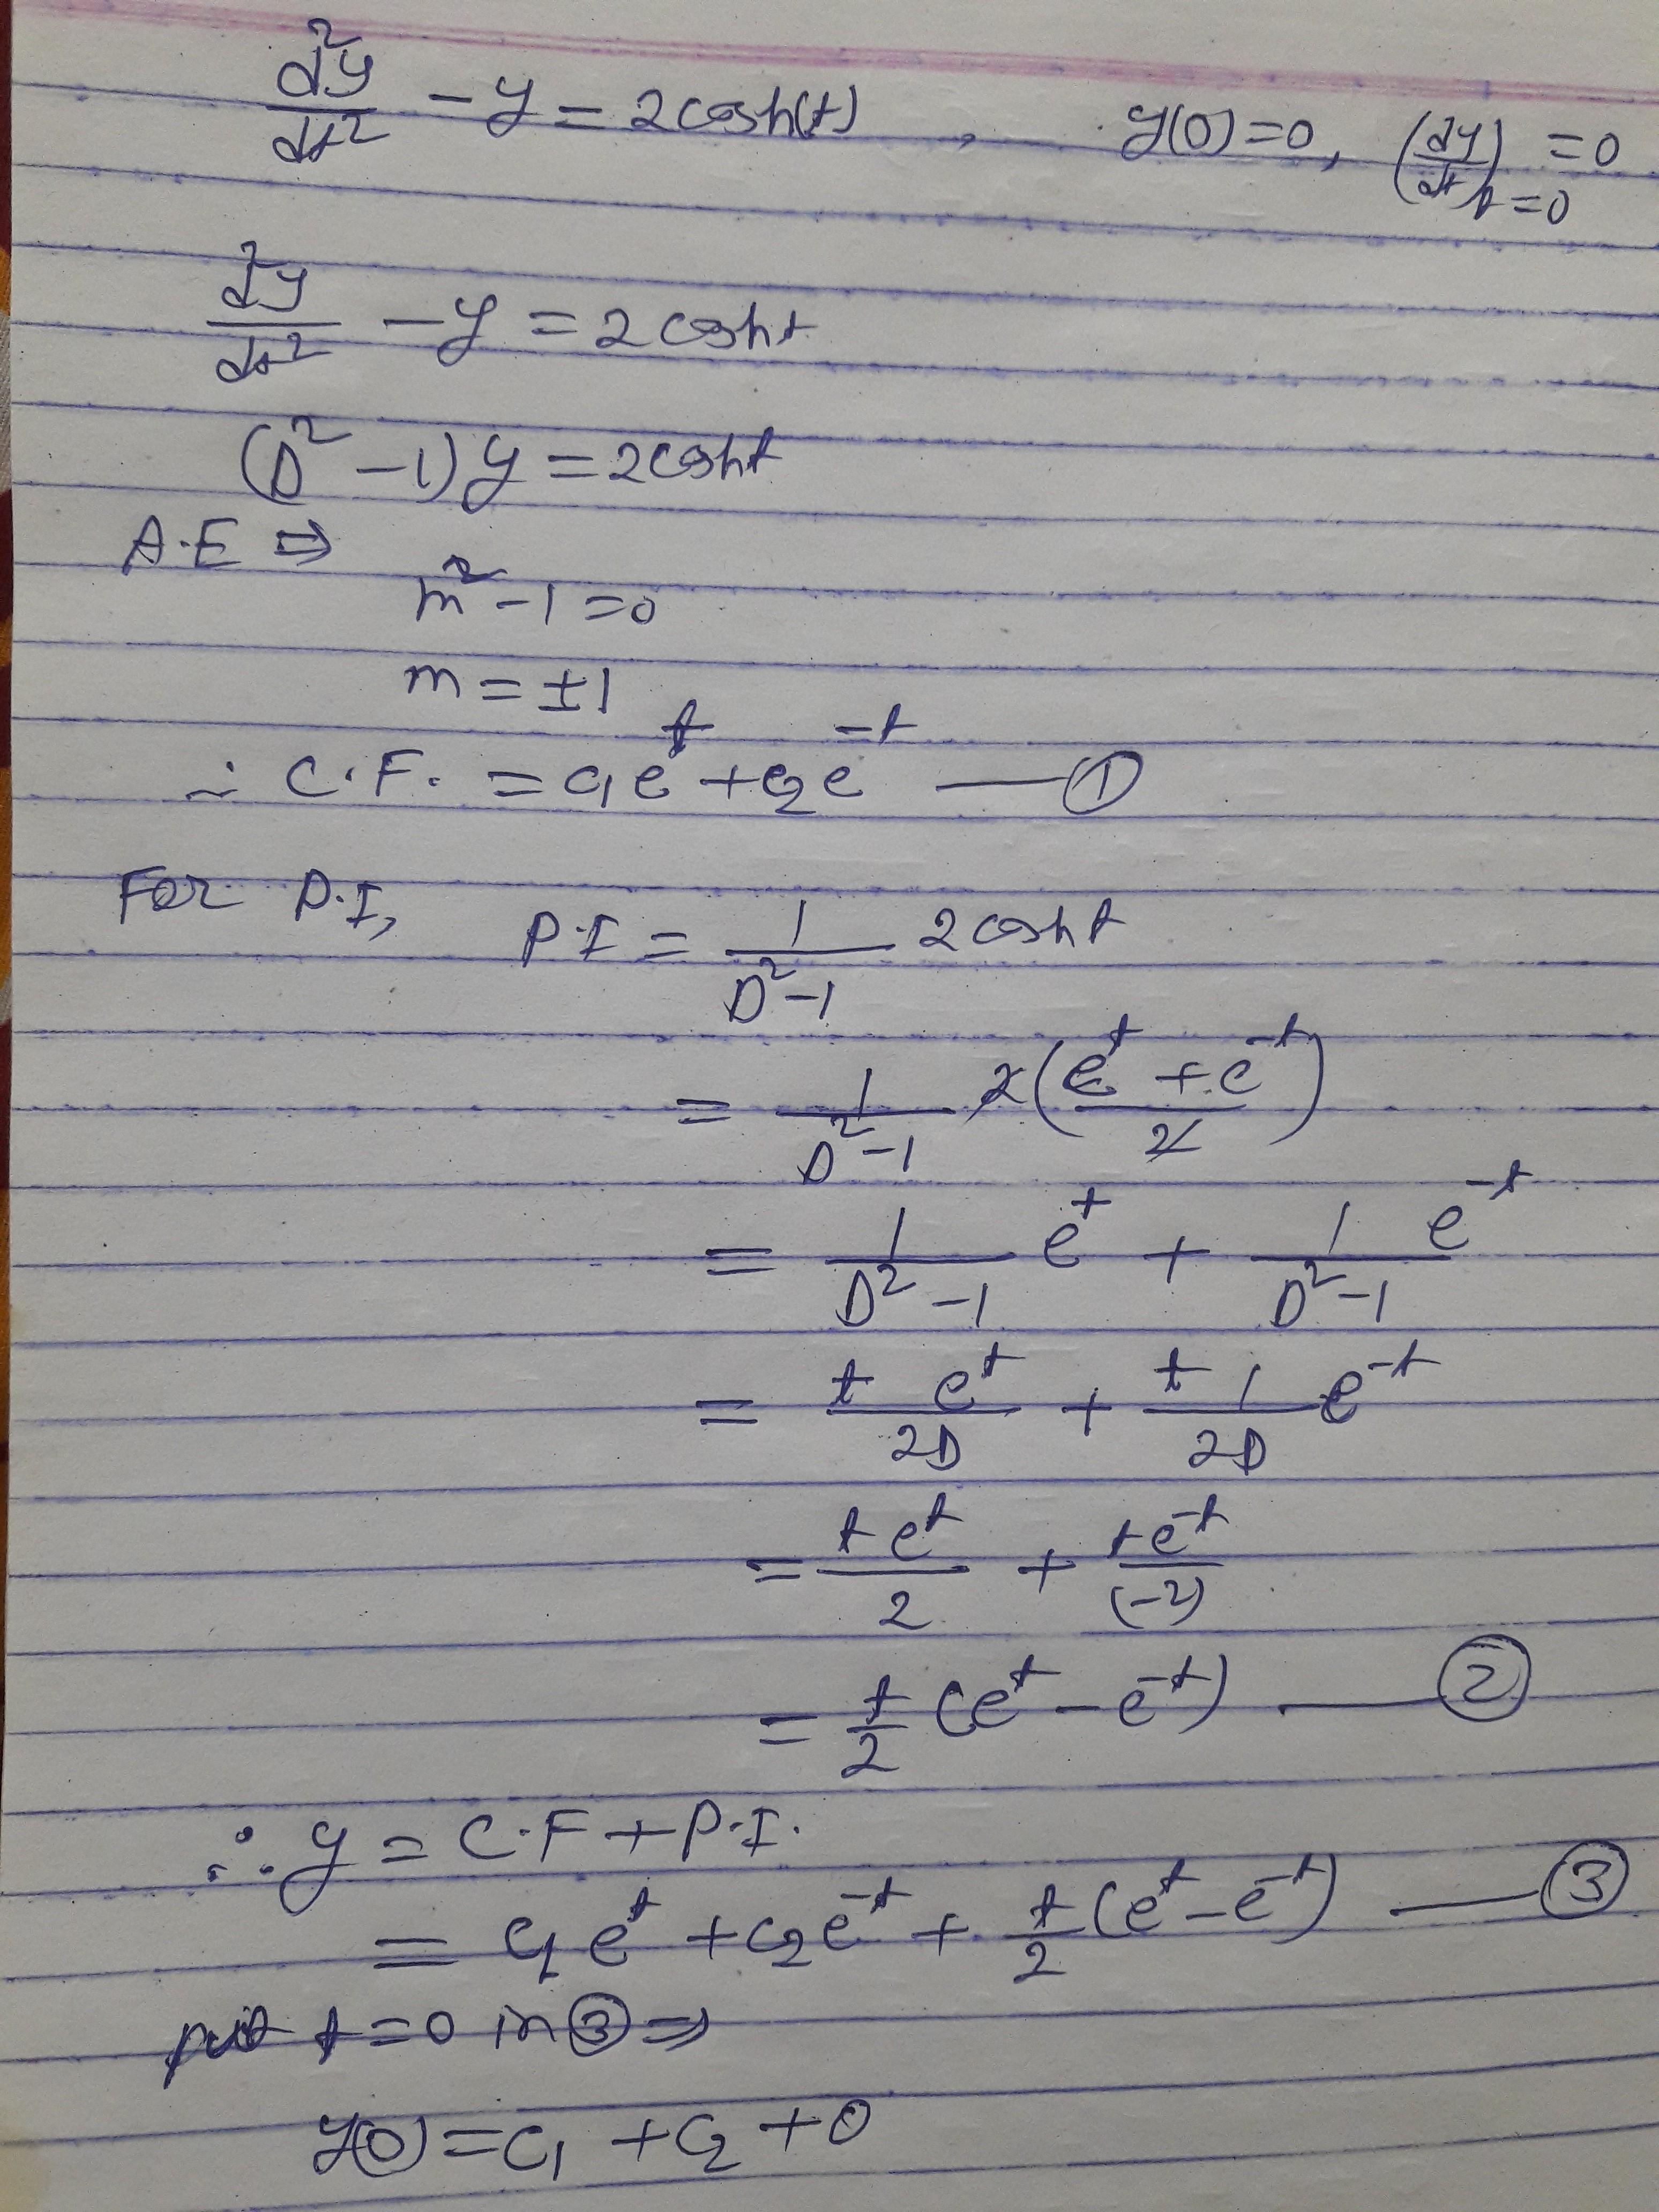 d²y/dt² - y = 2cosh(t) , y(0)=0, (dy/dt)t=0 = 0
d²y/dt² - y = 2cosht
(D² - 1)y = 2cosht
A.E ⇒
m² - 1 = 0
m = ±1
∴ C.F. = c₁eᵗ + c₂e⁻ᵗ — ①
For P.I, P.I = 1/(D²-1) 2cosht
= 1/(D²-1) 2((eᵗ + e⁻ᵗ)/2)
= 1/(D²-1) eᵗ + 1/(D²-1) e⁻ᵗ
= t eᵗ/2D + t 1/2D e⁻ᵗ
= teᵗ/2 + te⁻ᵗ/(-2)
= t/2 (eᵗ - e⁻ᵗ) — ②
∴ y = C.F + P.I.
= c₁eᵗ + c₂e⁻ᵗ + t/2 (eᵗ - e⁻ᵗ) — ③
put t=0 in ③ ⇒
y(0) = c₁ + c₂ + 0